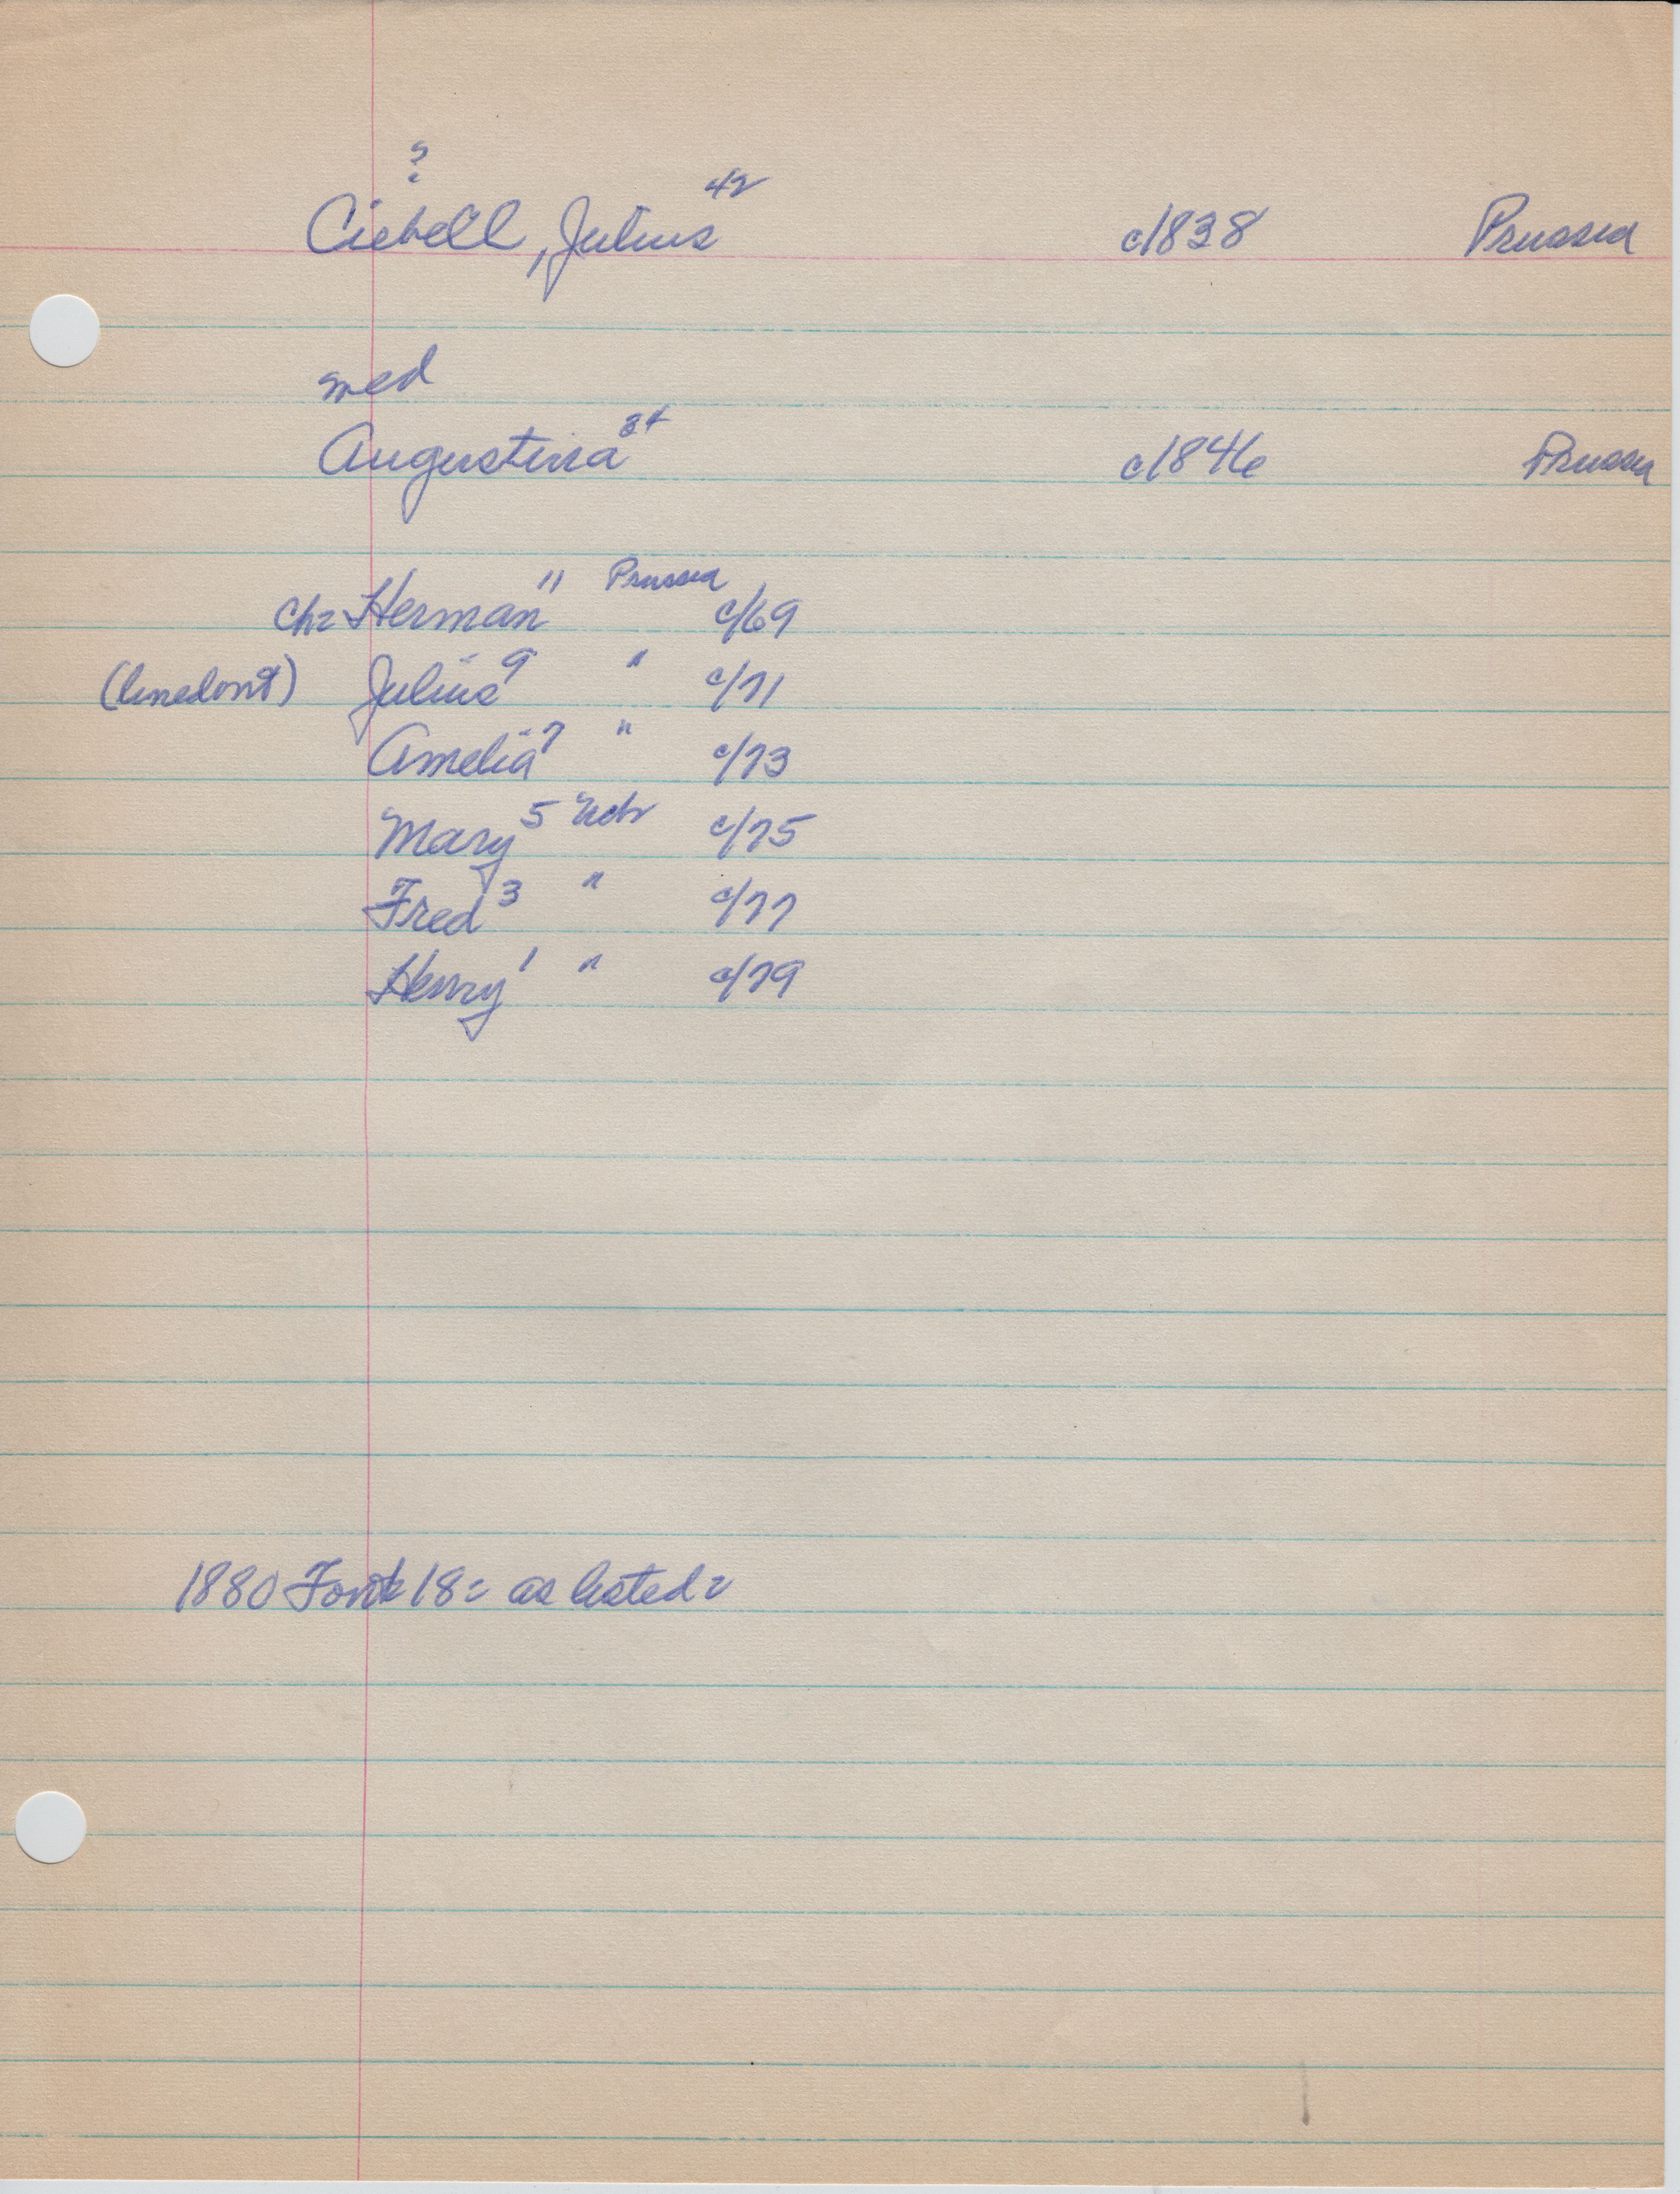 ?
Ciebell, Julius 42 c/1838 Prussia
med
Augustina 34 c/1846 Prussia
Ch: Herman 11 Prussia c/69
Julius 9 " c/71
Amelia 7 " c/73
Mary 5 c/75
Fred 3 " c/77
Henry 1 " c/79
1880 18: as listed: